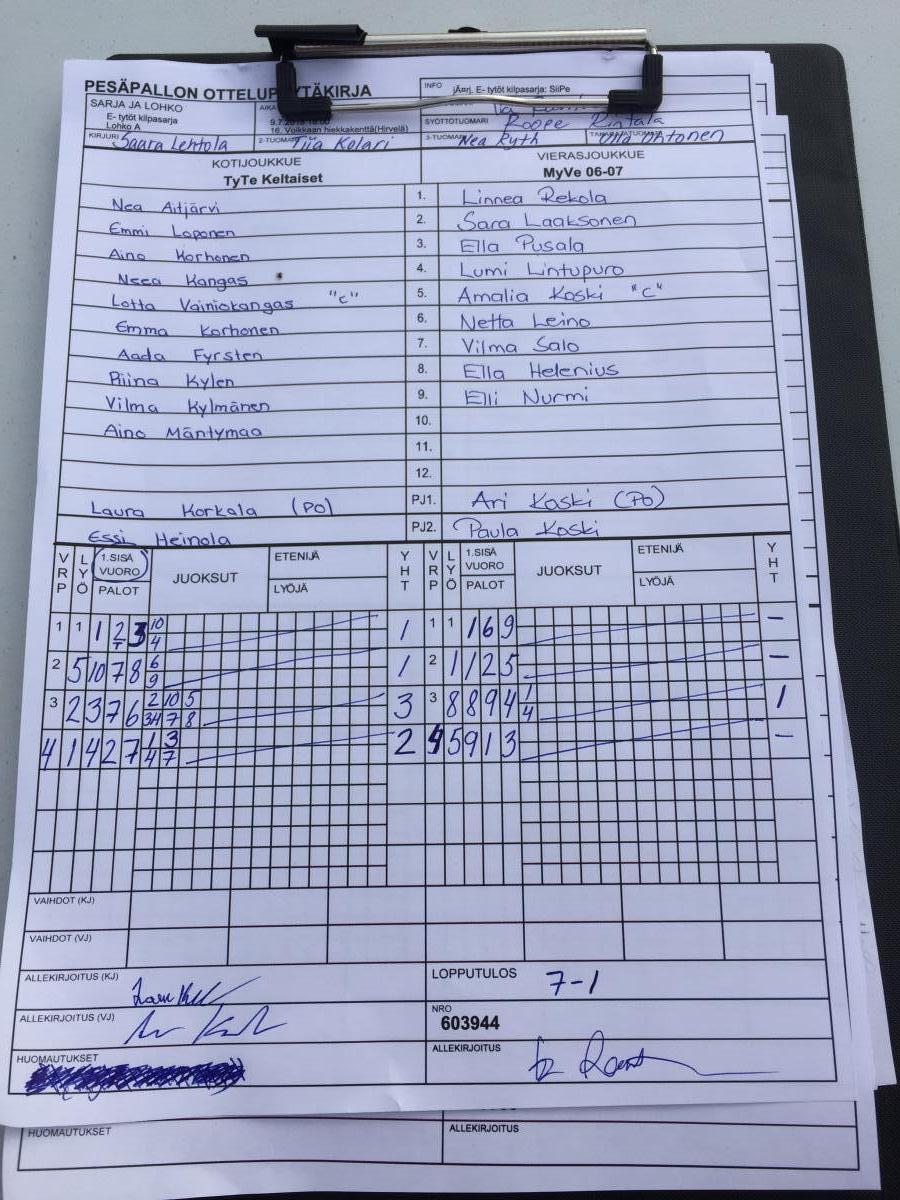 PESÄPALLON OTTELUP YTÄKIRJA
INFO jÄ¤rj. E- tytöt kilpasarja: SiiPe
SARJA JA LOHKO
E- tytöt kilpasarja
Lohko A
16. Voikkaan hiekkakenttä(Hirvelä)
SYÖTTÖTUOMARI Roope Rintala
KIRJURI Saara Lehtola 2-TUOMARI Tiia Kolari 3-TUOMARI Nea Ryth Ulla Uhtonen
KOTIJOUKKUE VIERASJOUKKUE
TyTe Keltaiset MyVe 06-07
Nea Äijärvi 1. Linnea Rekola
Emmi Loponen 2. Sara Laaksonen
Aino Korhonen 3. Ella Pusala
Neea Kangas 4. Lumi Lintupuro
Lotta Vainiokangas "c" 5. Amalia Koski "C"
Emma Korhonen 6. Netta Leino
Aada Fyrsten 7. Vilma Salo
Piina Kylen 8. Ella Helenius
Vilma Kylmänen 9. Elli Nurmi
Aino Mäntymaa 10.
11.
12.
Laura Korkala (PO) PJ1. Ari Koski (PO)
Essi Heinola PJ2. Paula Koski
VRP LYÖ 1.SISÄ VUORO PALOT JUOKSUT ETENIJÄ LYÖJÄ YHT VRP LYÖ 1.SISÄ VUORO PALOT JUOKSUT ETENIJÄ LYÖJÄ YHT
1 1 1 2 3 10 4 1 1 1 1 6 9 -
2 5 10 7 8 6 9 1 2 1 1 2 5 -
3 2 3 7 6 2 10 5 34 7 8 3 3 8 8 9 4 1 4 1
4 1 4 2 7 1 3 4 7 2 4 5 9 1 3 -
VAIHDOT (KJ)
VAIHDOT (VJ)
ALLEKIRJOITUS (KJ) LOPPUTULOS 7-1
ALLEKIRJOITUS (VJ) NRO 603944
HUOMAUTUKSET ALLEKIRJOITUS
HUOMAUTUKSET ALLEKIRJOITUS